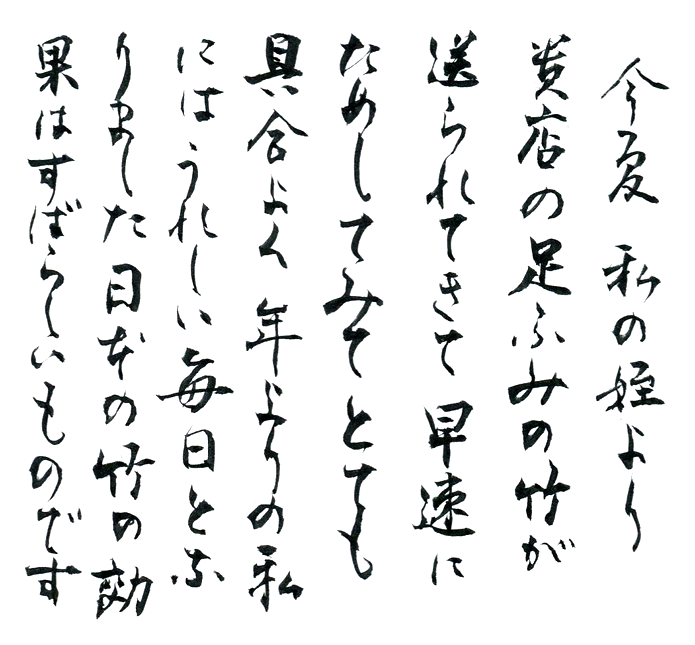 今夏 私の姪より
貴店の足ふみの竹が
送られてきて 早速に
ためしてみて とても
具合よく 年よりの私
にはうれしい毎日とな
りました 日本の竹の効
果はすばらしいものです